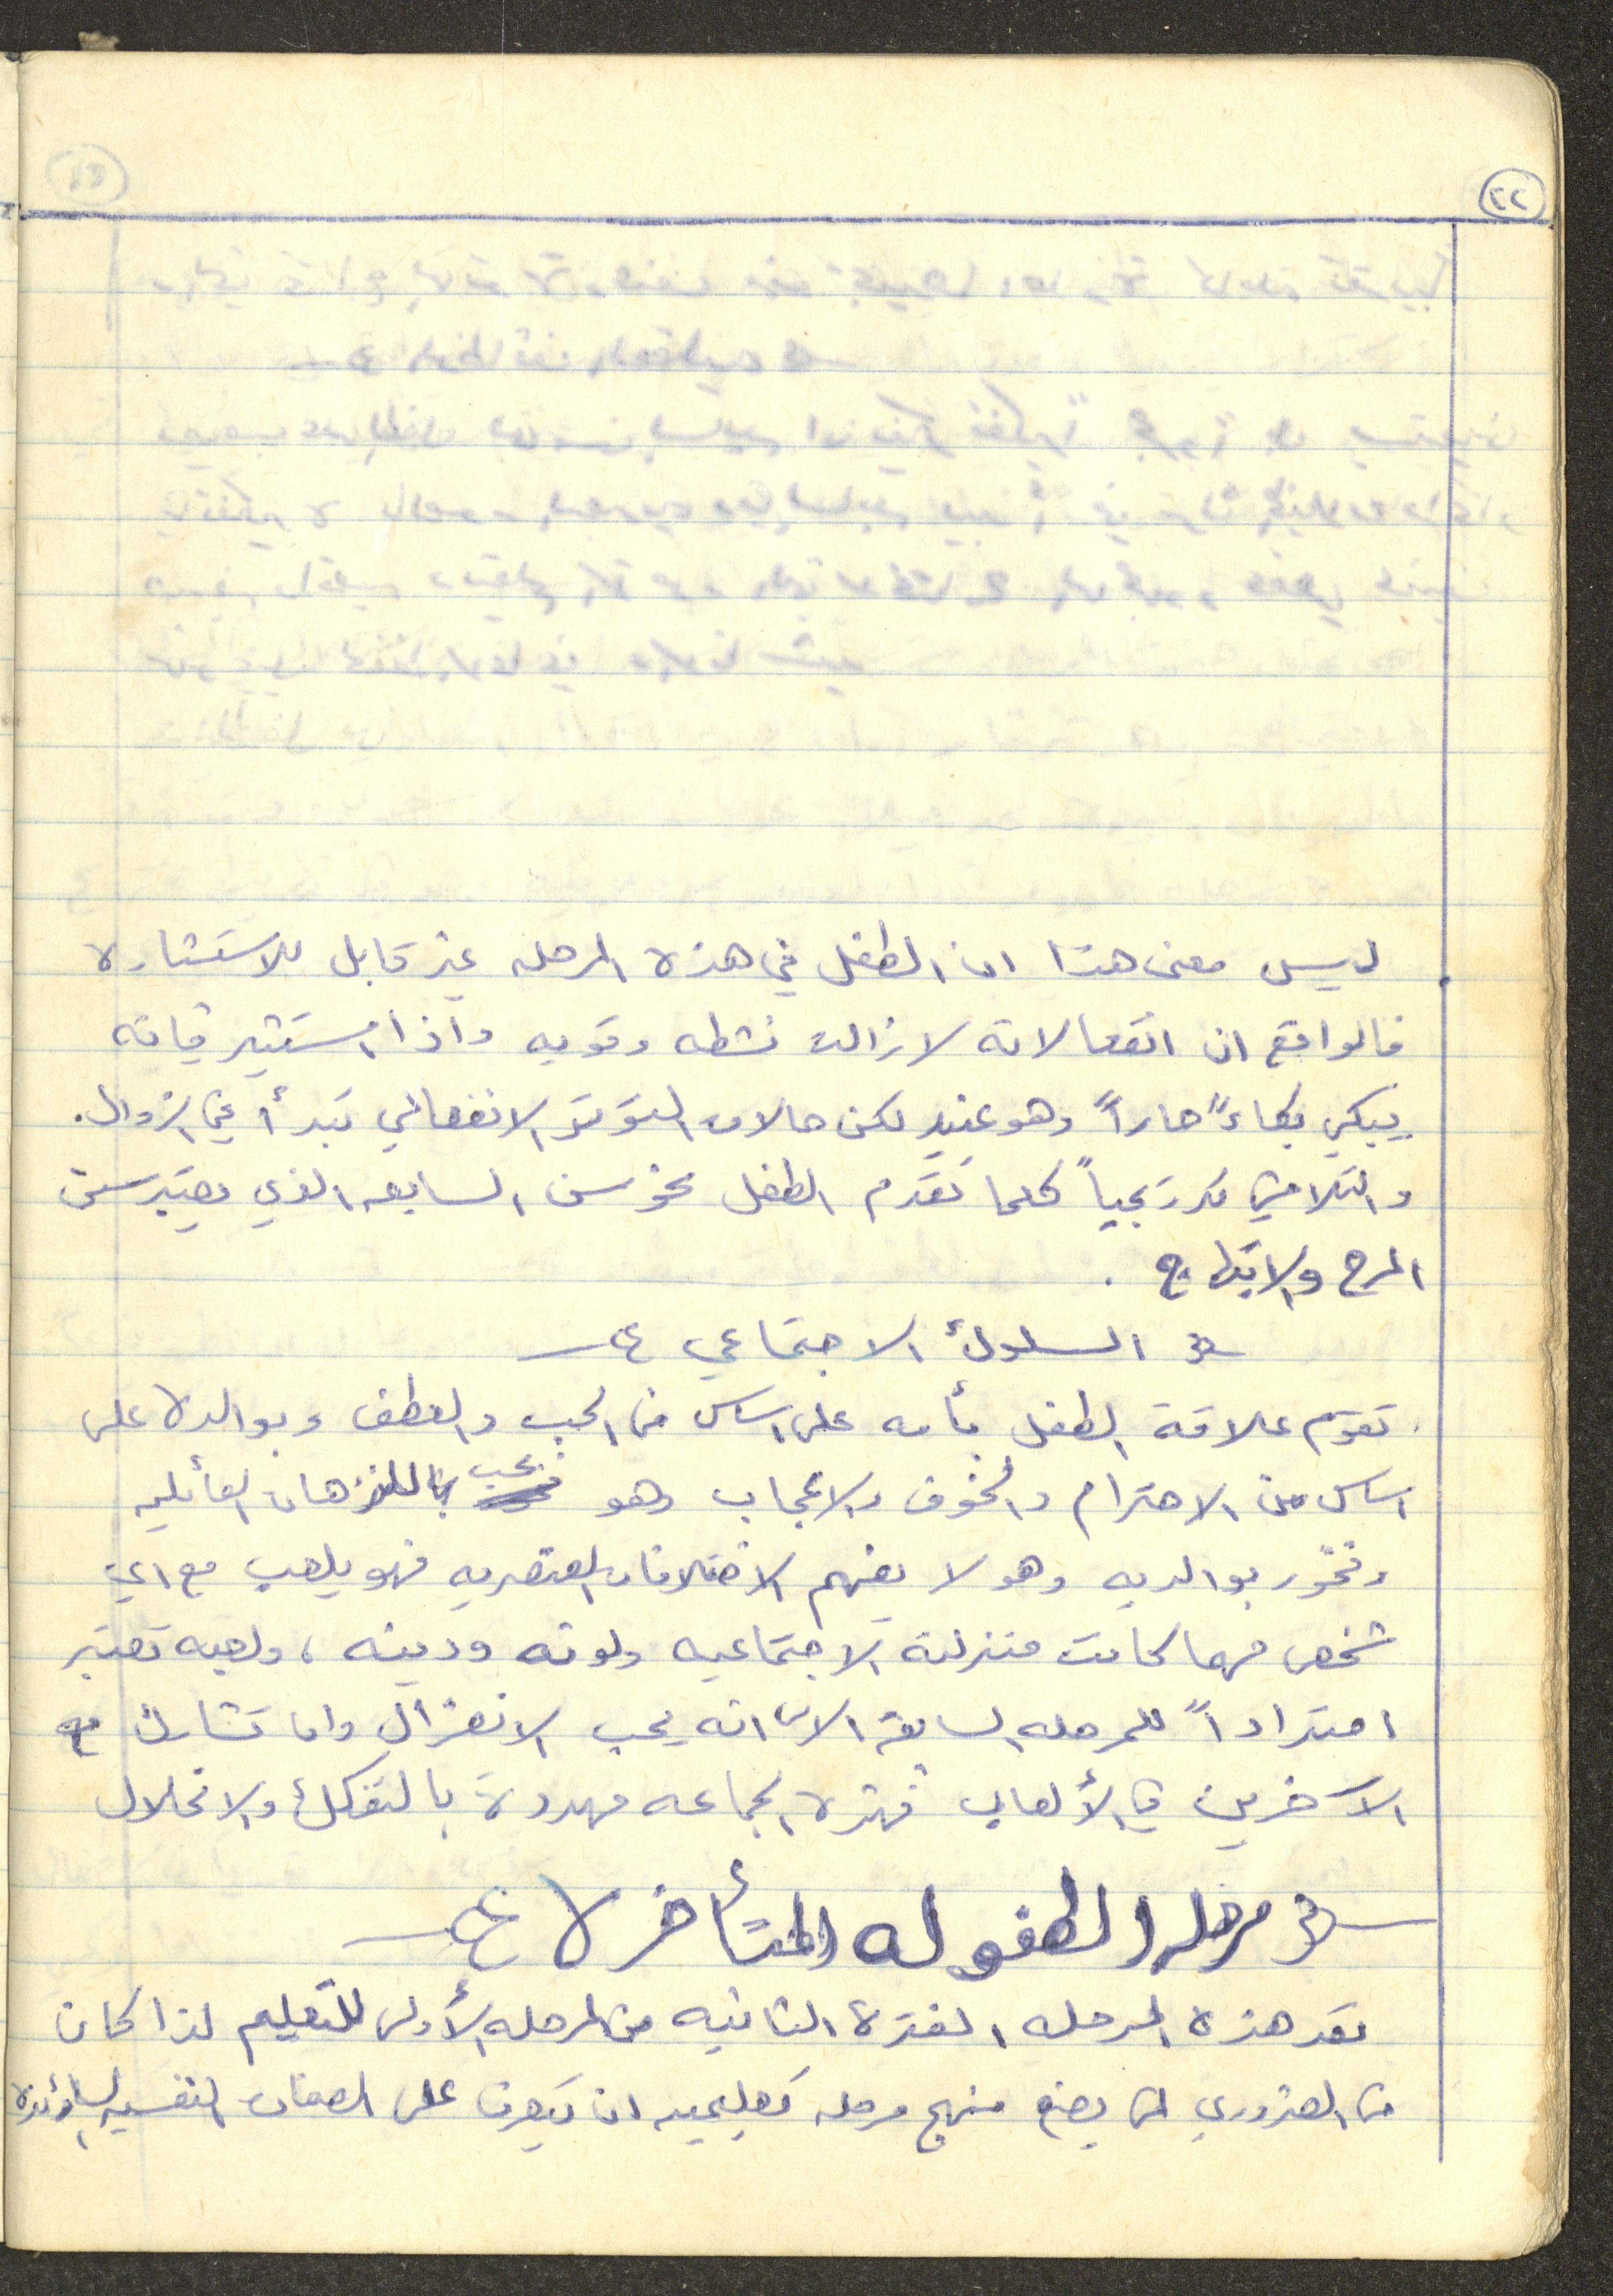 ٢٢
ليس معنى هذا ان الطفل في هذه المرحله غير قابل للاستثاره
فالواقع ان انفعالاته لازالت نشطه وقويه واذا استثير فانه
يبكي بكاءً حاراً وهو عنيد لكن حالات التوتر الانفعالي تبدأ في الزوال.
والتلاشي تدريجياً كلما تقدم الطفل نحو سن السابعه الذي يعتبر سن
المرح والابتهاج .
السلوك الاجتماعي
تقوم علاقة الطفل بأمه على اساس من الحب والعطف وبوالده على
اساس من الاحترام والخوف والاعجاب وهو معجب بالنزهات العائليه
وفخور بوالديه وهو لا يفهم الاختلافات العنصريه فهو يلعب مع اي
شخص مهما كانت منزلته الاجتماعيه ولونه ودينه ، ولعبه تعتبر
امتداداً للمرحله السابقه الا انه يحب الانعزال وان تشارك مع
الآخرين في الألعاب فهذه الجماعه مهددة بالتفكك والانحلال
مرحلة الطفوله المتأخره
تعد هذه المرحله الفترة الثانيه من المرحله الأولى للتعليم لذا كان
من الضروري لمن يضع منهج مرحله تعليميه ان يتعرف على الصفات النفسيه السائده